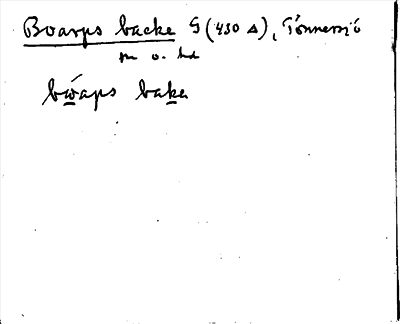 Boarps backe G (430 Δ), Tönnersjö
m o. hd
bẃaps bake